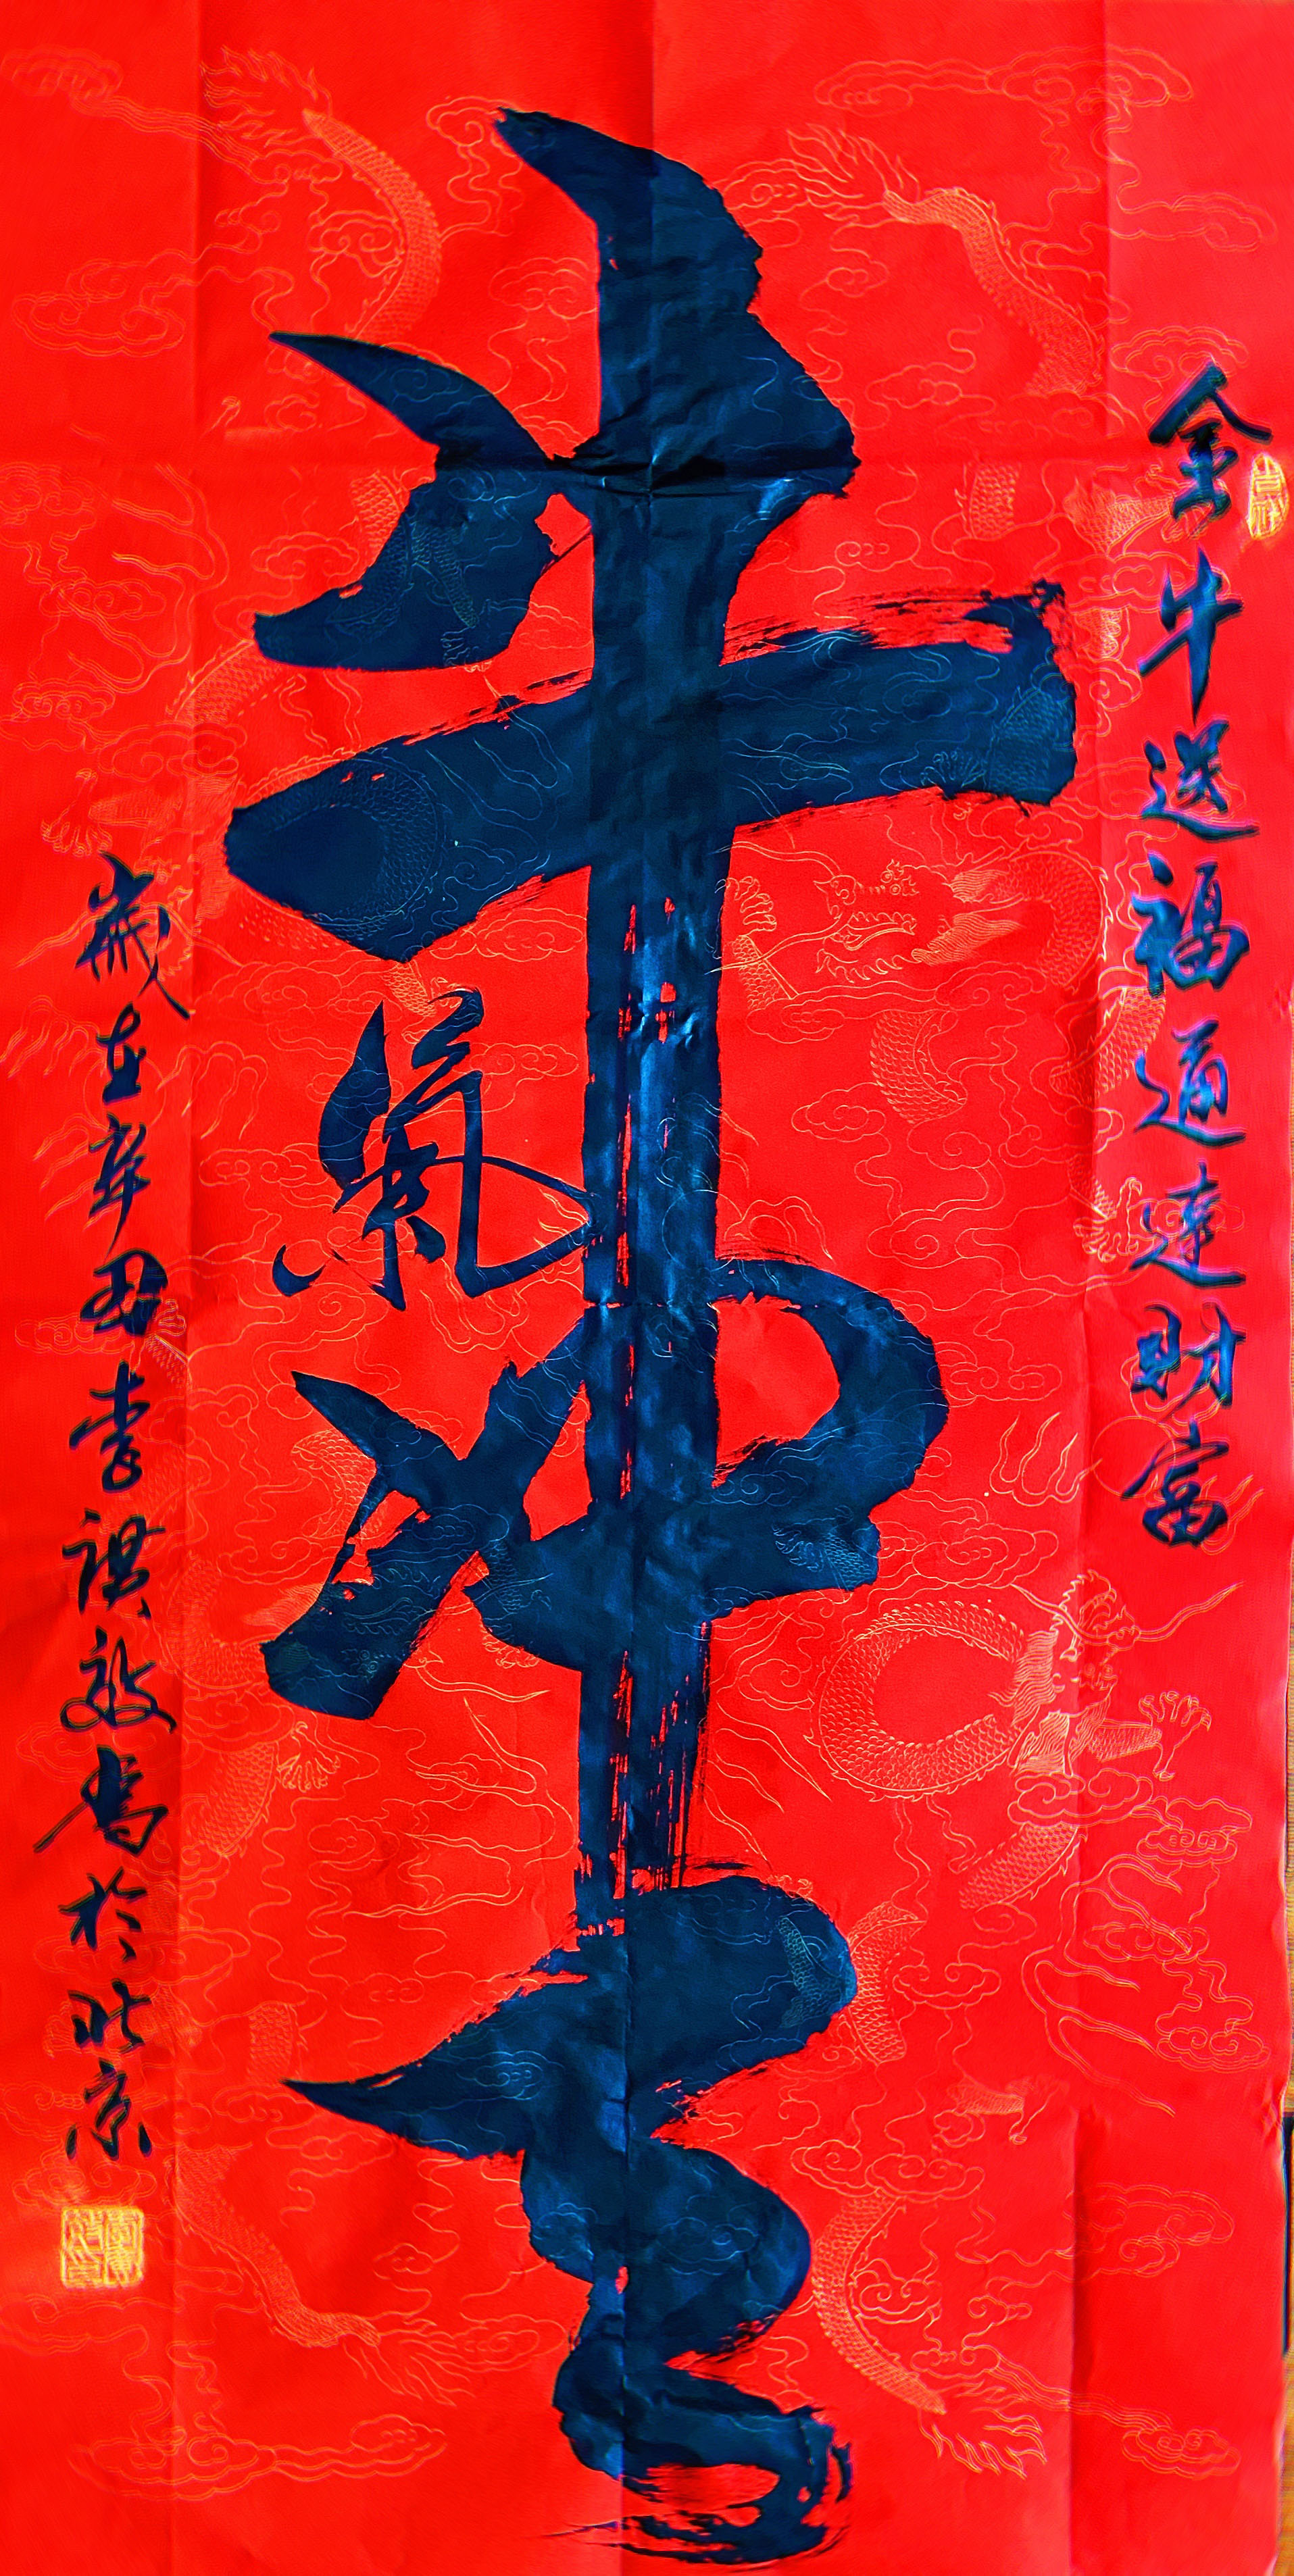 吉祥
金牛送福通達財富
牛氣冲天
歲在辛丑李祺敬寫於北京